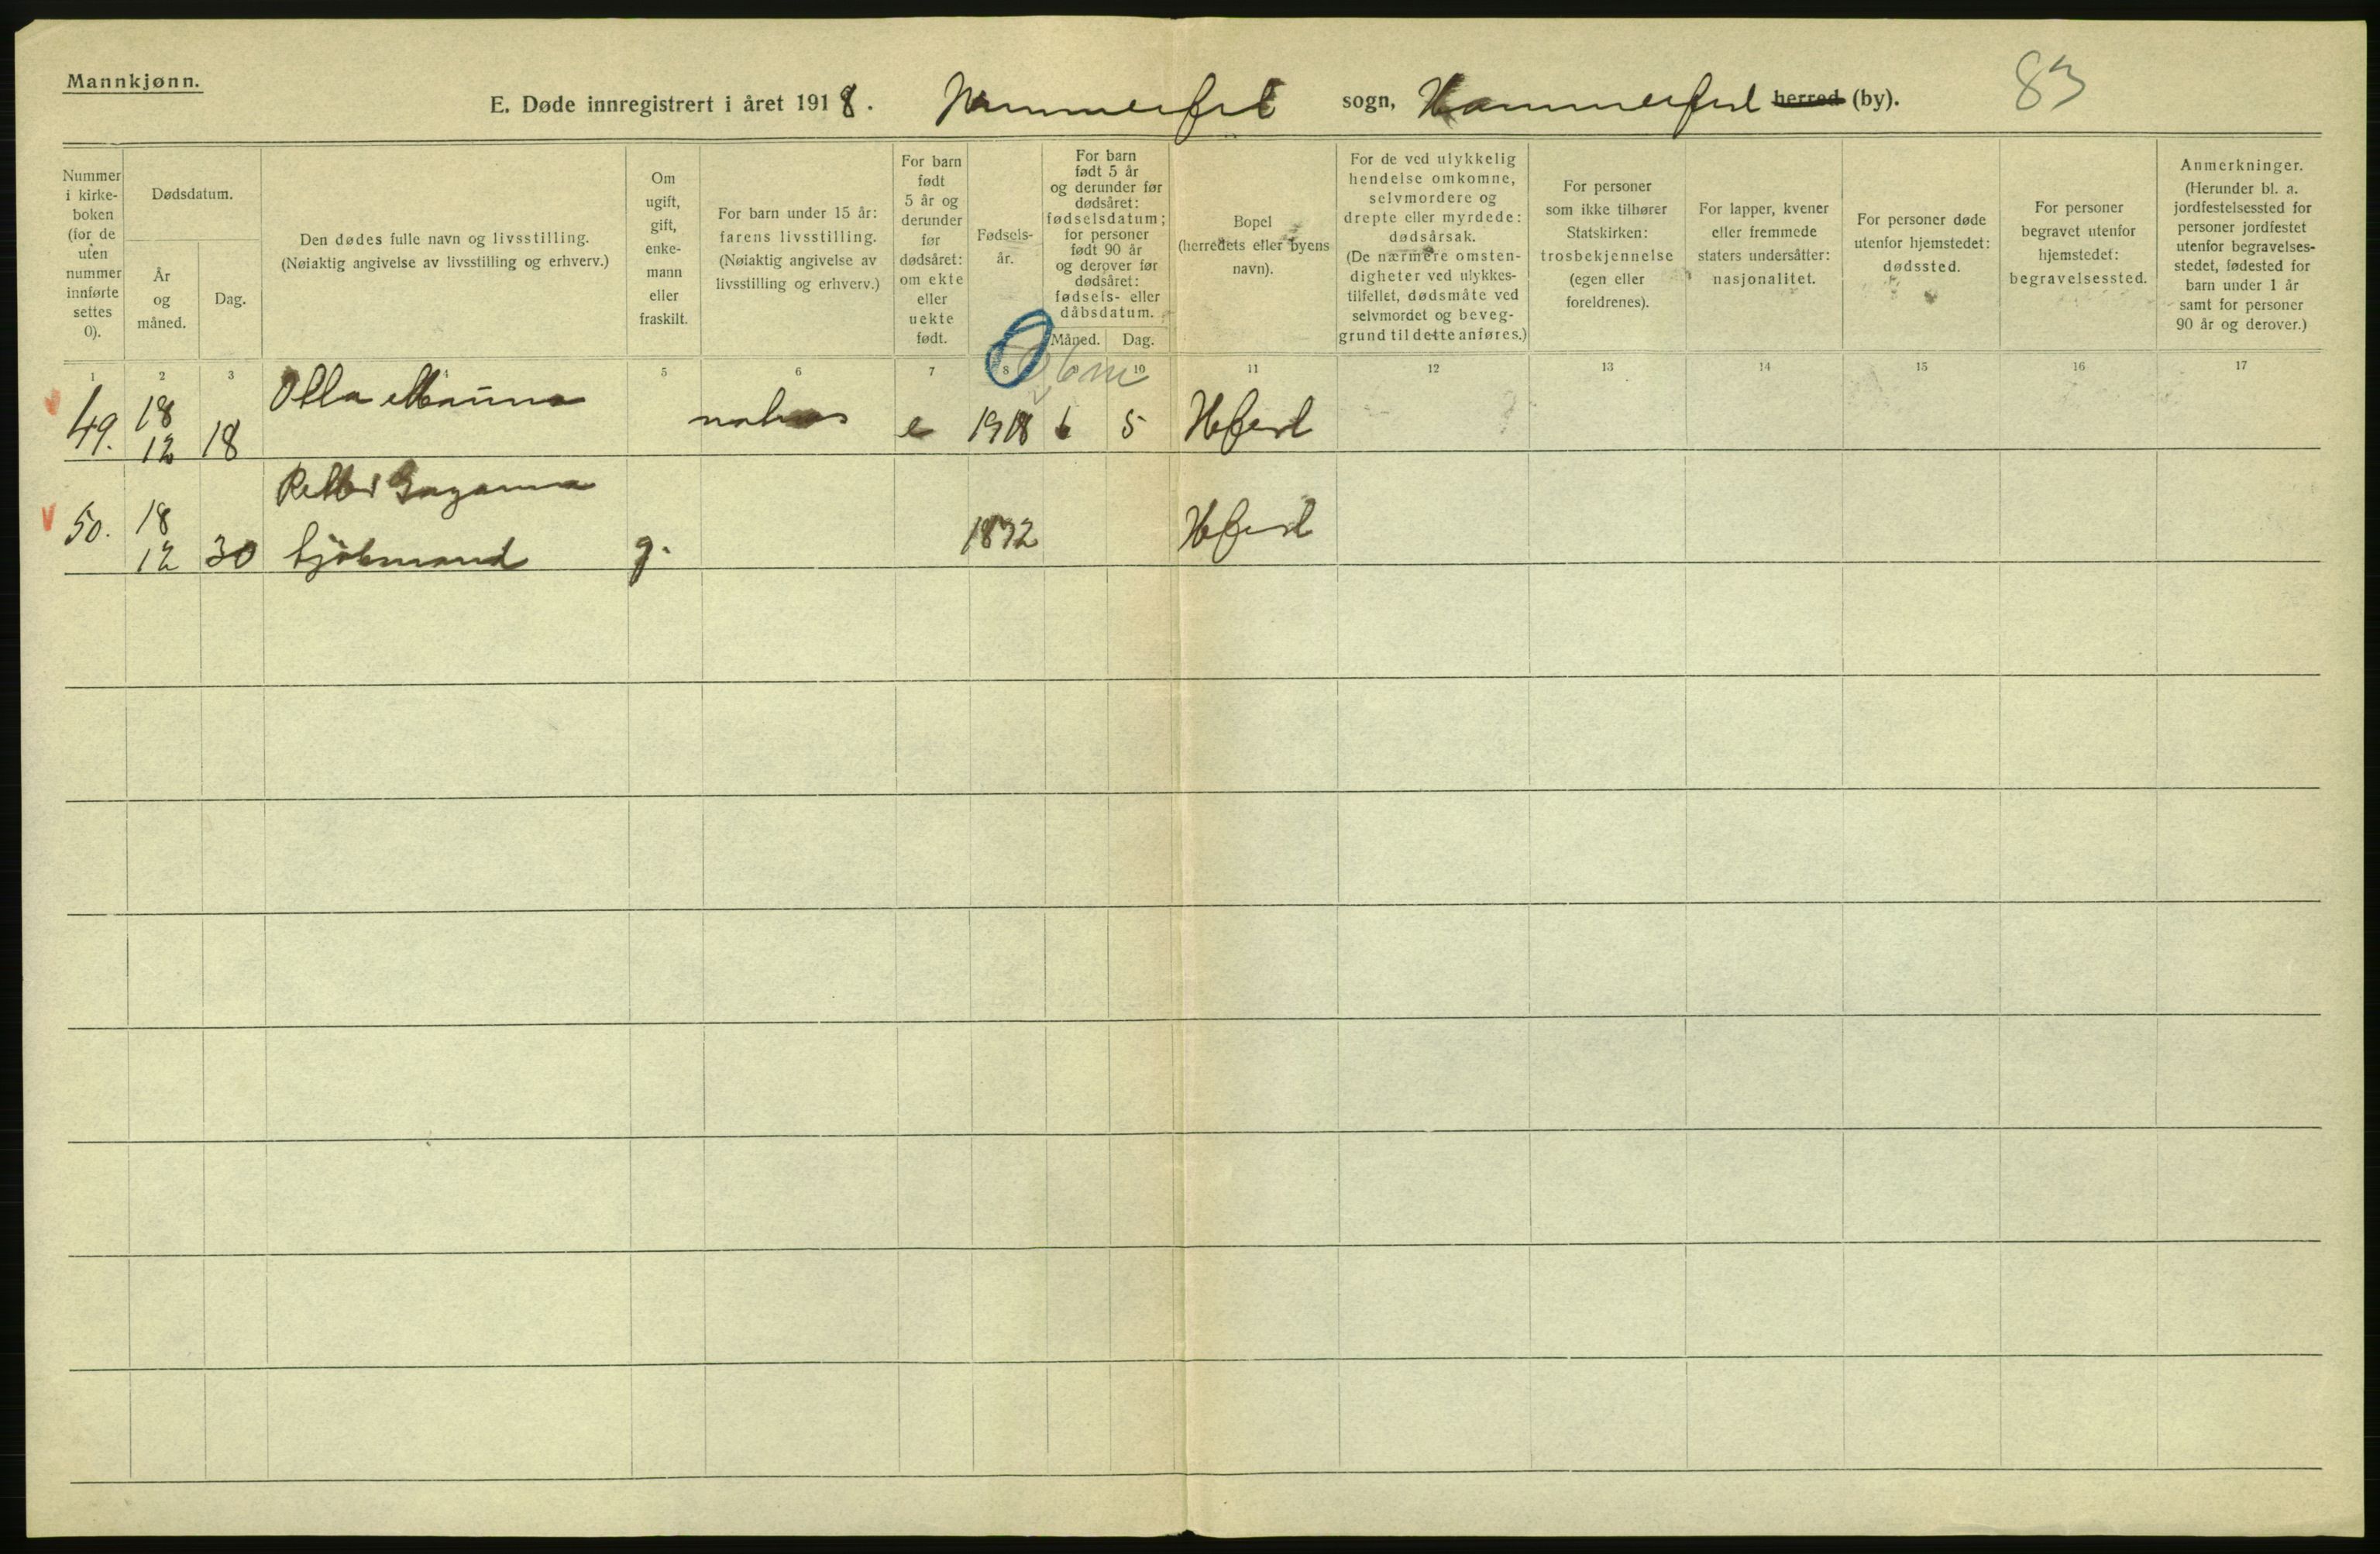 Mannkjønn.
E. Døde innregistrert i året 1918. Hammerfest sogn, Hammerfest herred (by). 83
Nummer i kirke-boken (for de uten nummer innførte settes 0).
Dødsdatum.
År og måned.
Dag.
Den dødes fulle navn og livsstilling.
(Nøiaktig angivelse av livsstilling og erhverv.)
Om ugift, gift, enke-mann eller fraskilt.
For barn under 15 år: farens livsstilling.
(Nøiaktig angivelse av livsstilling og erhverv.)
For barn født 5 år og derunder før dødsåret: om ekte eller uekte født.
Fødsels-år.
For barn født 5 år og derunder før dødsåret: fødselsdatum; for personer født 90 år og derover før dødsåret: fødsels- eller dåbsdatum.
Måned.
Dag.
Bopel
(herredets eller byens navn).
For de ved ulykkelig hendelse omkomne, selvmordere og drepte eller myrdede: dødsårsak.
(De nærmere omsten-digheter ved ulykkes-tilfellet, dødsmåte ved selvmordet og beveg-grund til dette anføres.)
For personer som ikke tilhører Statskirken: trosbekjennelse (egen eller foreldrenes).
For lapper, kvener eller fremmede staters undersåtter: nasjonalitet.
For personer døde utenfor hjemstedet: dødssted.
For personer begravet utenfor hjemstedet: begravelsessted.
Anmerkninger.
(Herunder bl. a. jordfestelsessted for personer jordfestet utenfor begravelses-stedet, fødested for barn under 1 år samt for personer 90 år og derover.)
1 2 3 4 5 6 7 8 10 11 12 13 14 15 16 17
0 6 m
49. 18 12 18 e 1918 6 5 Hfest
50. 18 12 30 g. 1872 Hfest